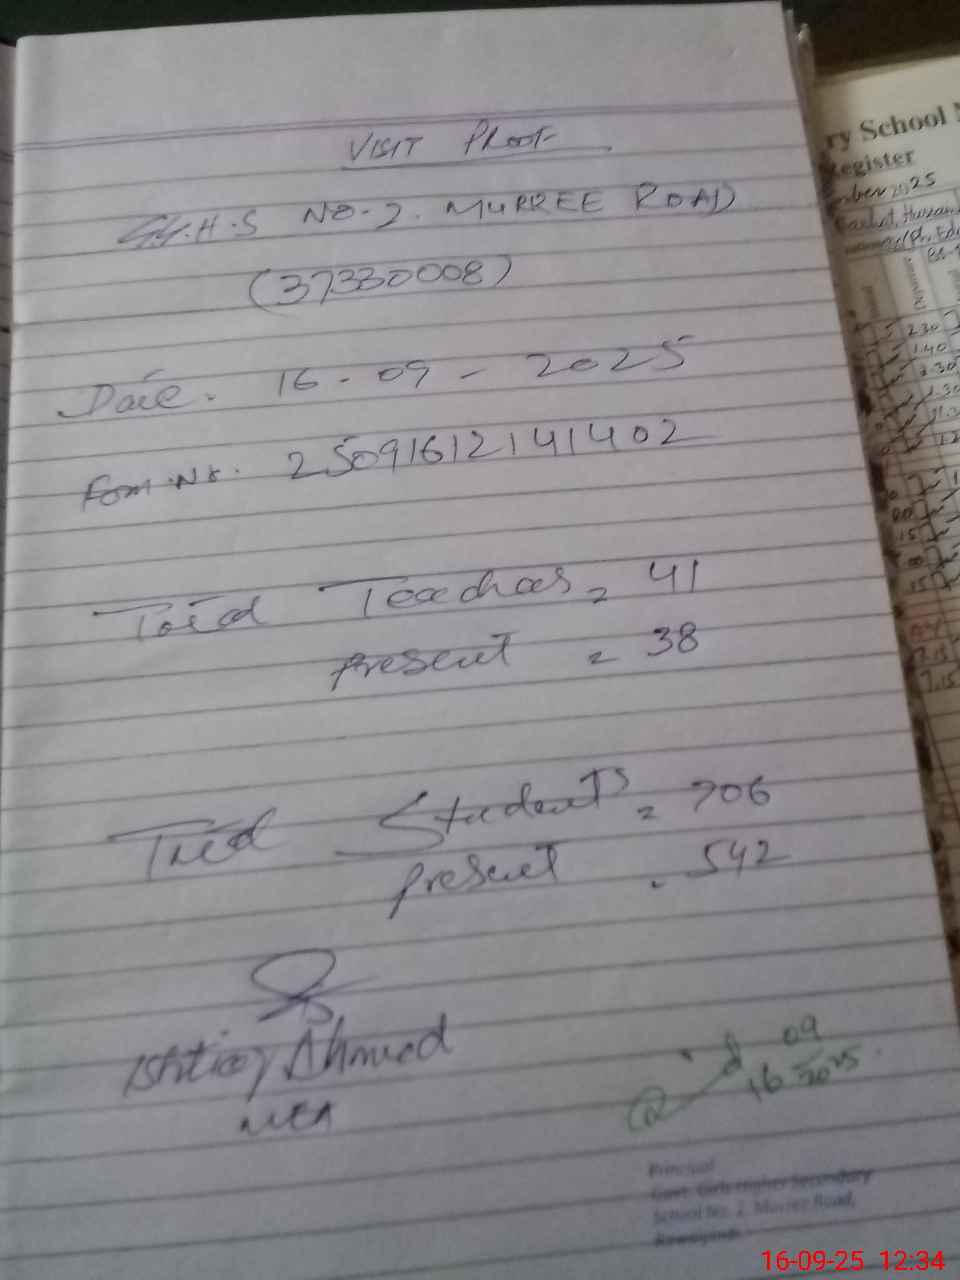 VISIT Proof
G.G.H.S NO-2. MURREE ROAD
(37330008)
Date. 16-09-2025
Form No. 25091612141402
Total Teachers = 41
present = 38
Total Students = 706
present = 542
Ishtiaq Ahmed
MEA
16 09 2025
Principal
Govt. Girls Higher Secondary
School No. 2 Murree Road,
Rawalpindi
ry School
Register
2025
2.30
1.40
2.30
7.15
16-09-25 12:34